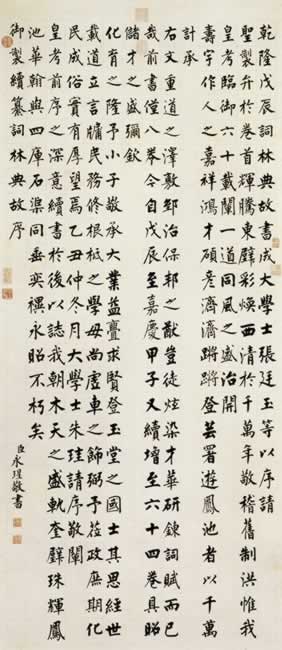 乾隆戊辰詞林典故書成大學士張廷玉等以序請
聖製弁於卷首輝騰東壁彩煥西清於千萬年敬稽舊制洪惟我
皇考臨御六十載闡一道同風之盛治開
壽宇作人之嘉祥鴻才碩彥濟濟蹌蹌登芸署遊鳳池者以千萬
計承
右文重道之澤敷郅治保邦之猷豈徒炫染才華研鍊詞賦而已
哉前書僅八卷今自戊辰至嘉慶甲子又續增至六十四卷具昭
儲才之盛彌欽
化育之隆予小子敬承大業益亹求賢登玉堂之國士其思經世
載道立言牖民務修根柢之學毋尚虛車之飾弼予莅政庶期化
民成俗實有厚望焉乙丑仲冬月大學士朱珪請序敬闡
皇考前序之深意續書於後以誌我朝木天之盛軌奎壁珠輝鳳
池華翰與四庫石渠同垂奕禩永昭不朽矣
御製續纂詞林典故序
臣永瑆敬書